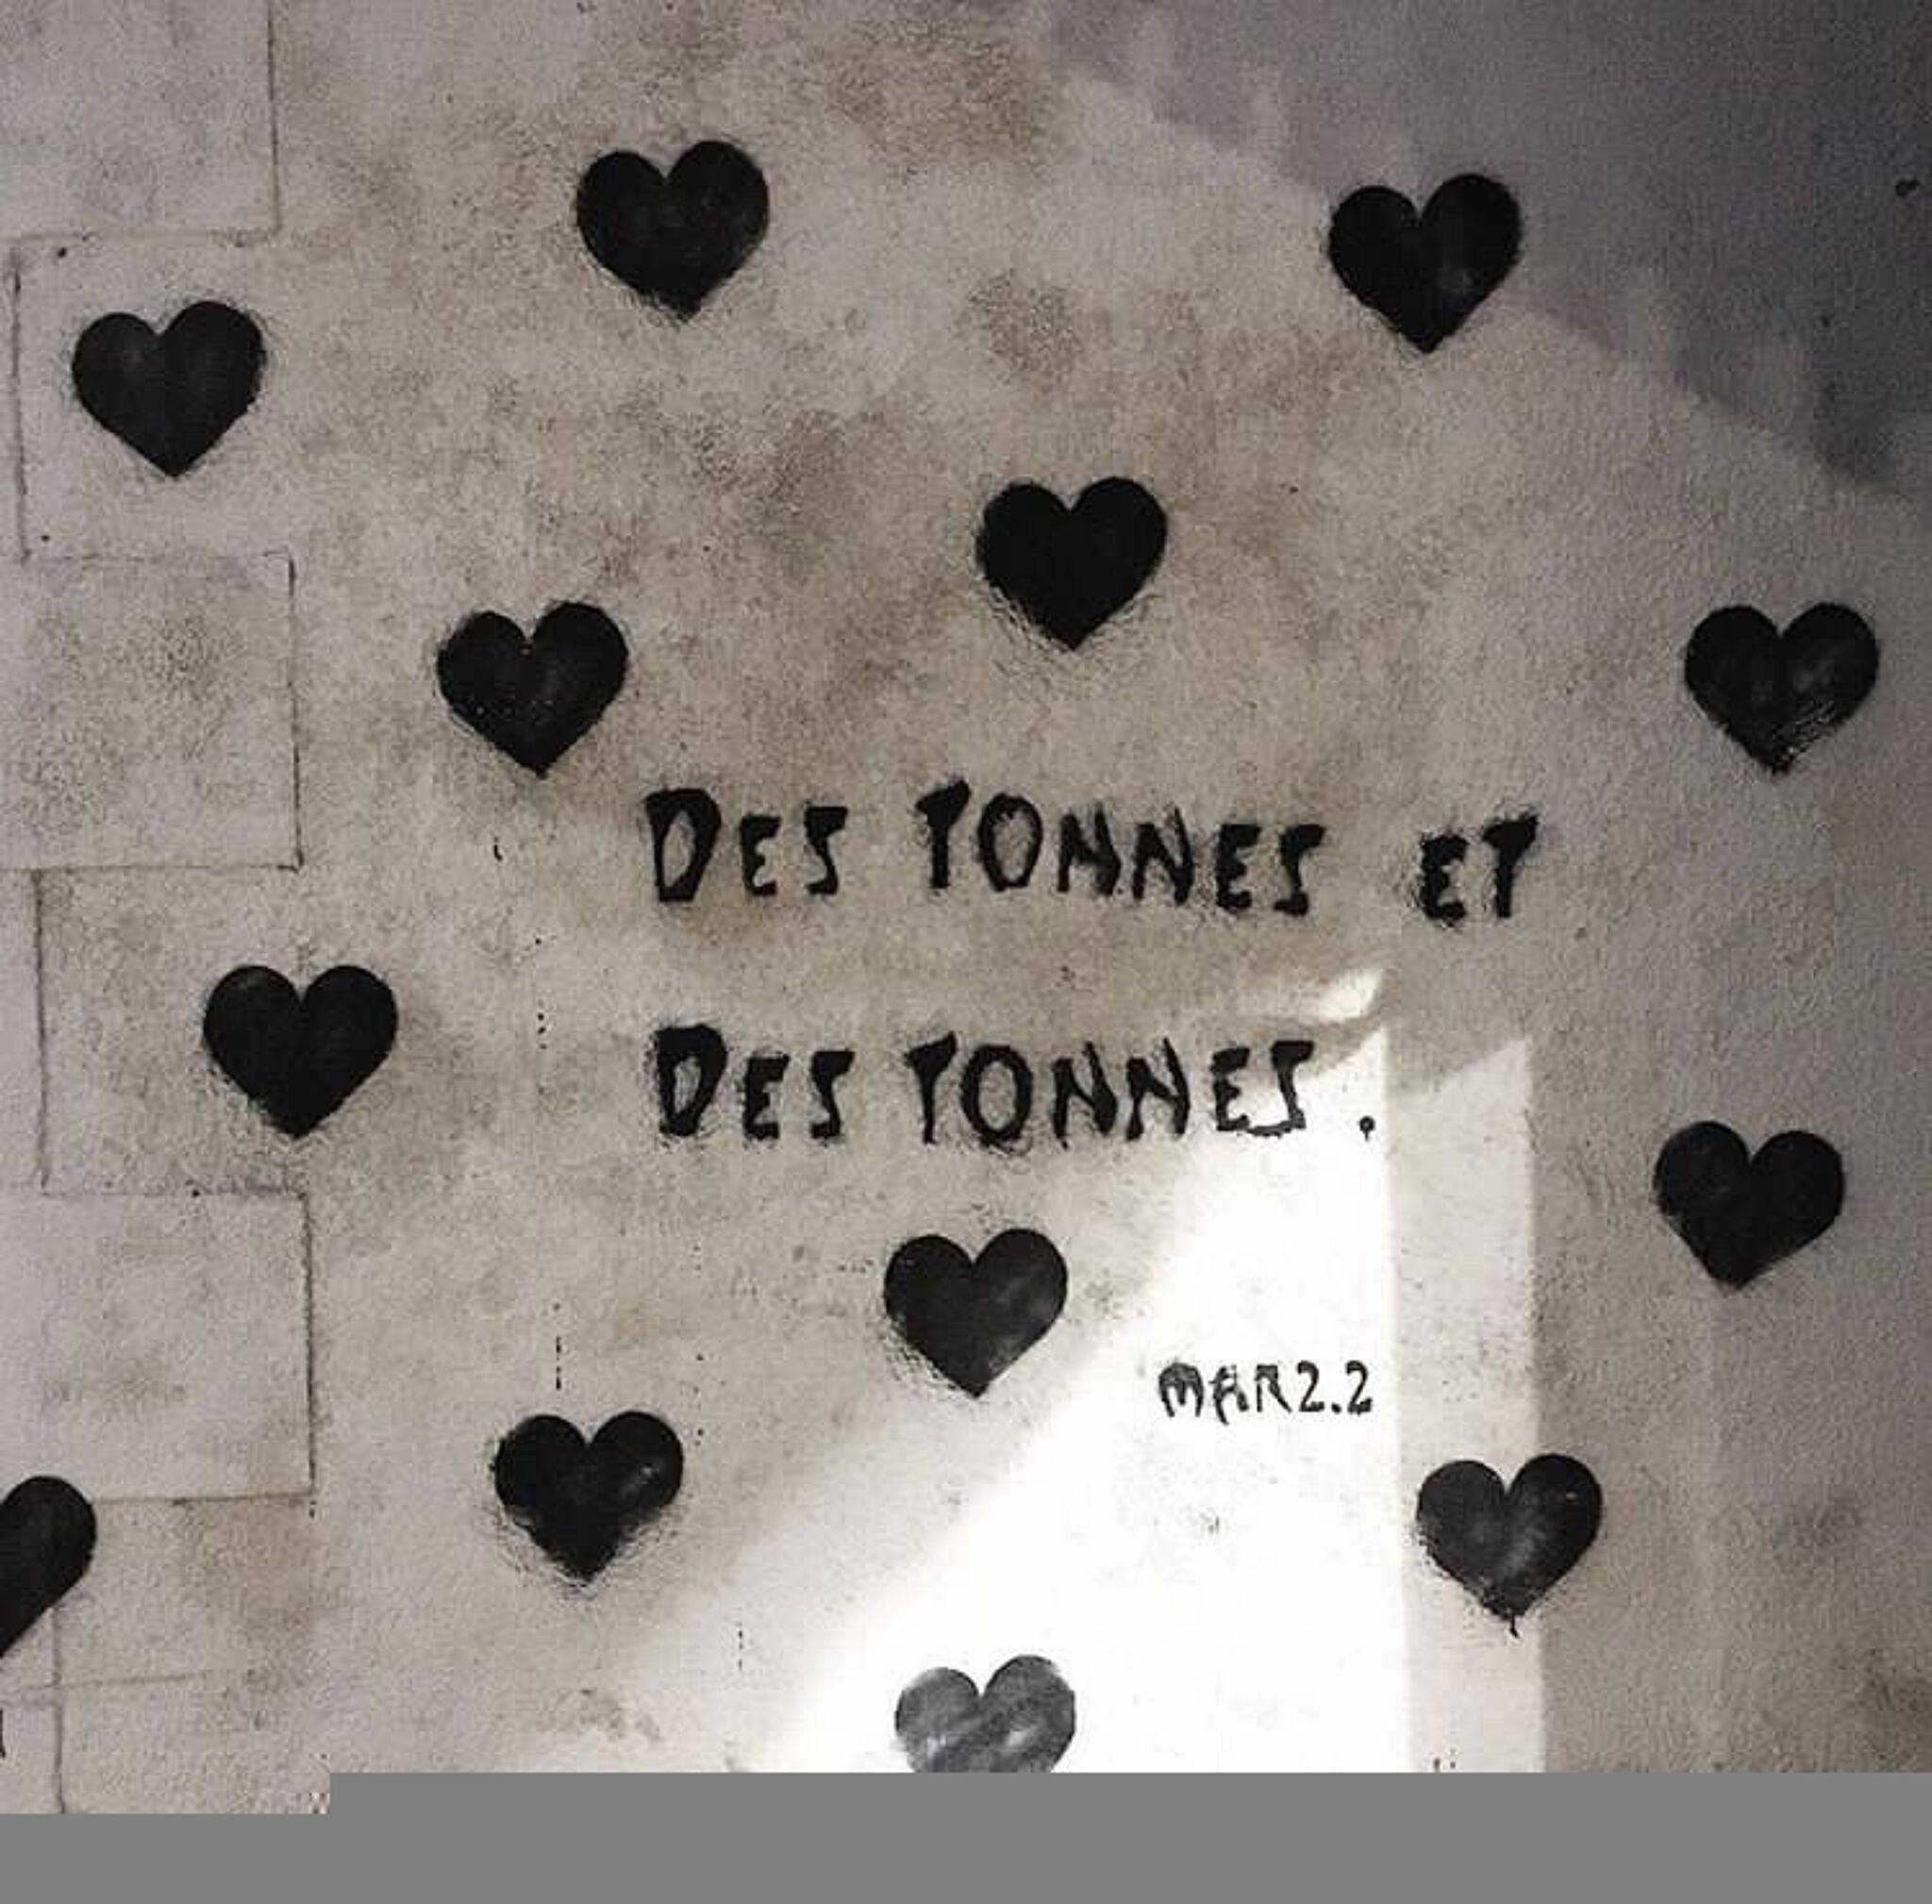 DES TONNES ET
DES TONNES.
MAR2.2